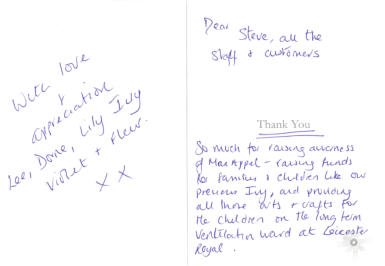 With love
+
appreciation
Lee, Dane, Lily Ivy
Violet + Fleur.
X X
Dear
Steve, all the
Staff & customers
Thank You
So much for raising awarness
of Max Appel - raising funds
for families & children like our
precious Ivy, and providing
all those arts & crafts for
the children on the long term
ventilation ward at Leicester
Royal.